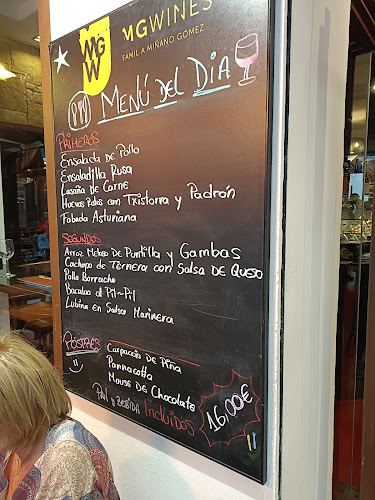 MGW
MGWINES
FAMILIA MIÑANO GÓMEZ
MENÚ DEL DIA
PRIMEROS
ENSALADA DE POLLO
ENSALADILLA RUSA
LASAÑA DE CARNE
HUEVOS ROTOS CON TXISTORRA y PADRÓN
FABADA ASTURIANA
SEGUNDOS
ARROZ MELOSO DE PUNTILLA y GAMBAS
CACHOPO DE TERNERA CON SALSA DE QUESO
POLLO BORRACHO
BACALAO al PIL-PIL
LUBINA EN SALSA MARINERA
POSTRES
CARPACCIO DE PIÑA
PANNACOTTA
MOUSE DE CHOCOLATE
PAN y BEBIDA INCLUIDOS
16,00€